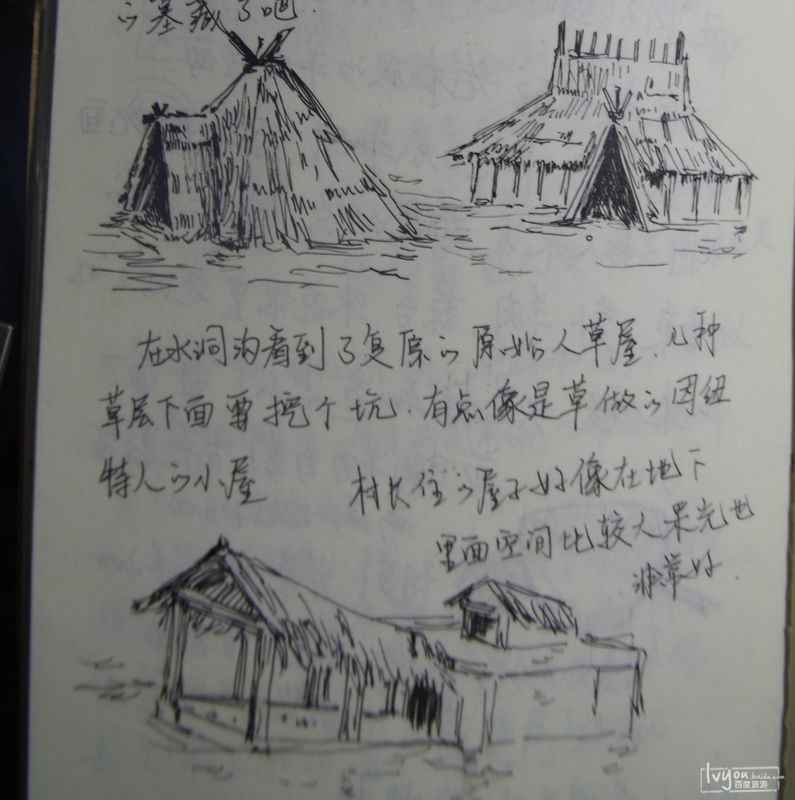 的墓藏了吧.
在水洞沟看到了复原的原始人草屋.几种
草屋下面要挖个坑.有点像是草做的因纽
特人的小屋
村长住的屋子好像在地下
里面空间比较大采光也
非常好.
lvyou.baidu.com
百度旅游